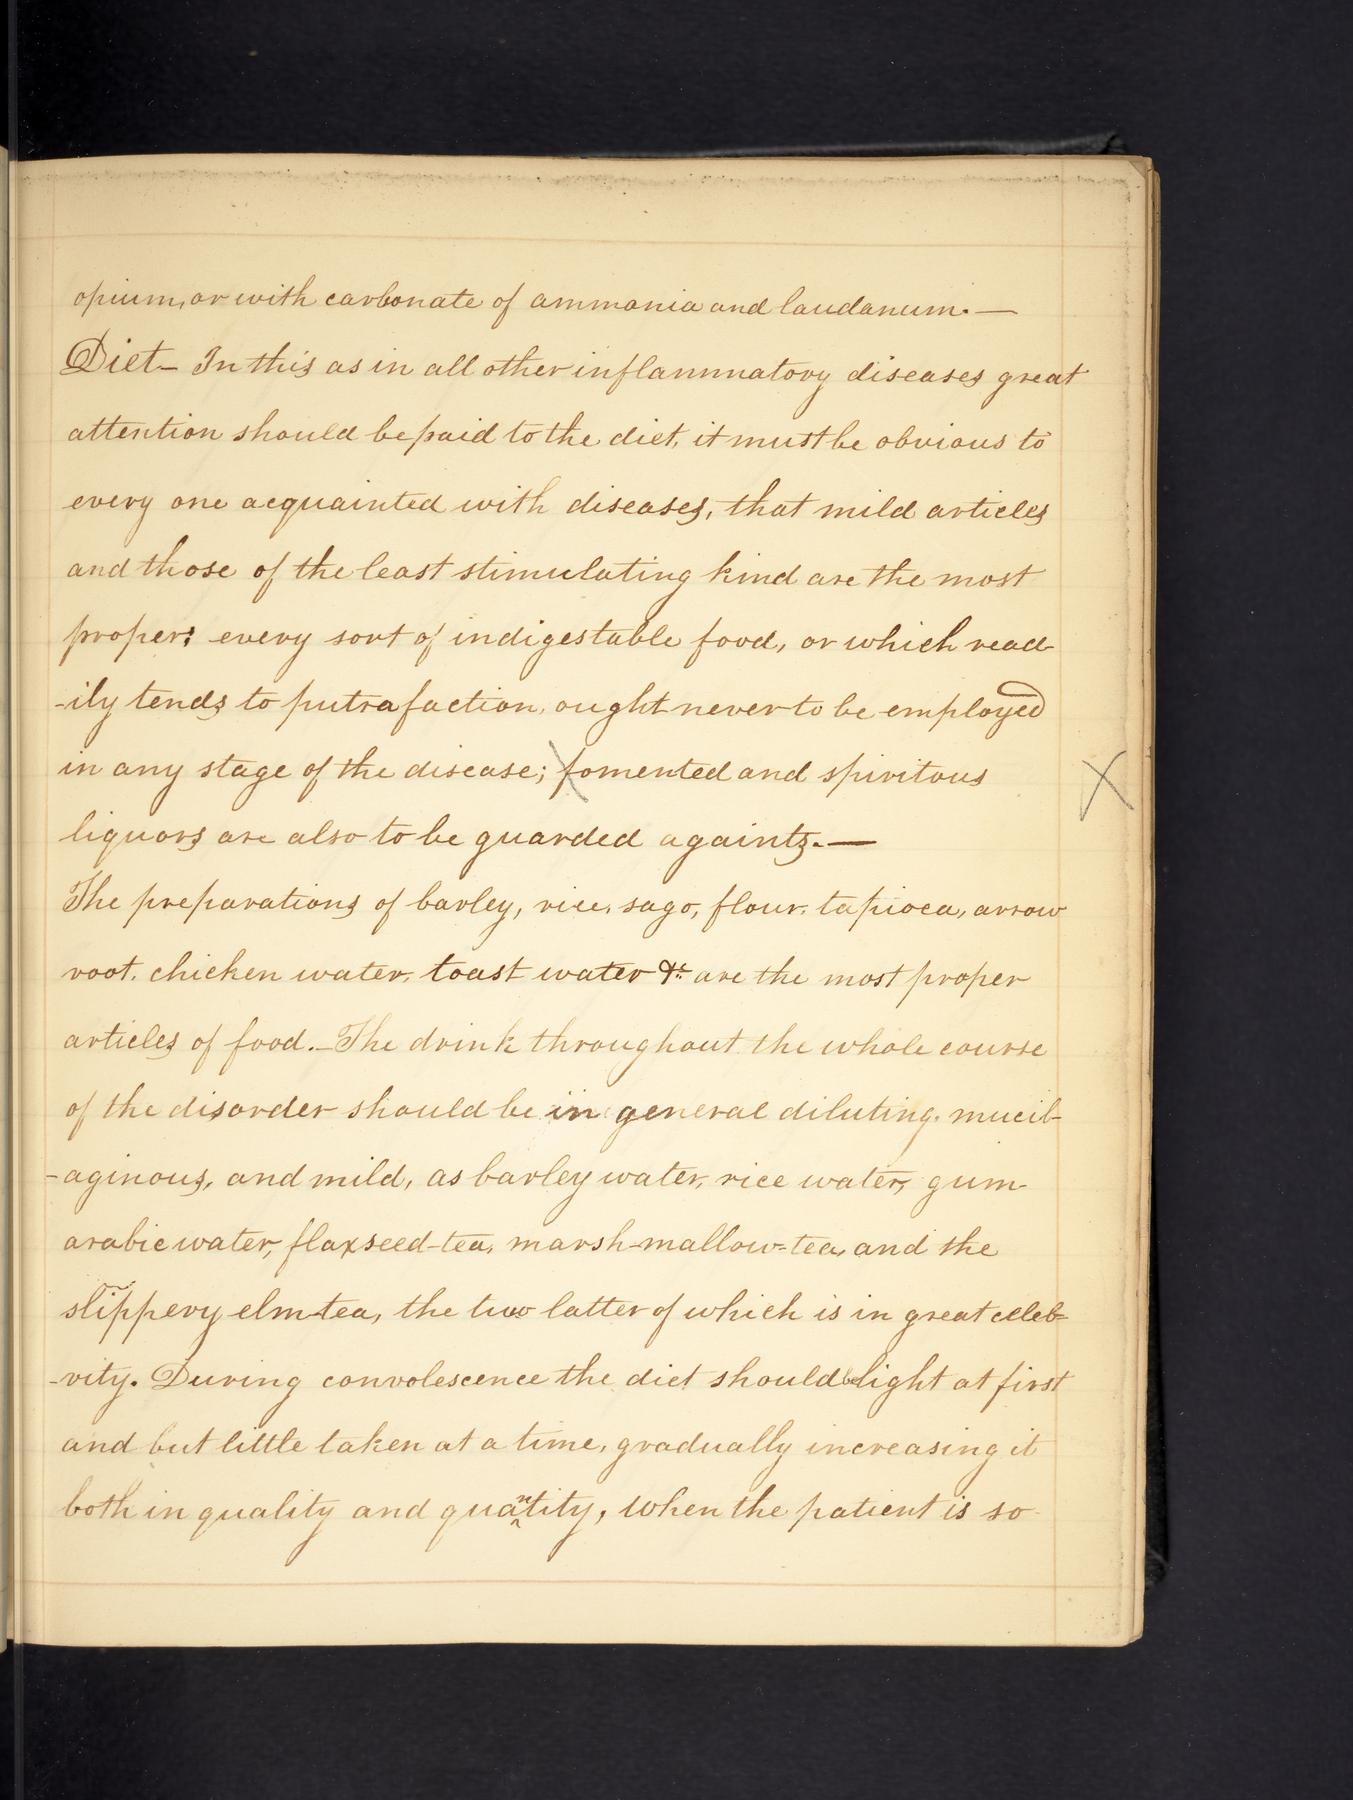 opium, or with carbonate of ammonia and laudanum.—
Diet— In this as in all other inflammatory diseases great
attention should be paid to the diet, it must be obvious to
every one acquainted with diseases, that mild articles
and those of the least stimulating kind are the most
proper; every sort of indigestable food, or which read-
-ily tends to putrafaction, ought never to be employed
in any stage of the disease; fomented and spiritous
liquors are also to be guarded againts.—
The preparations of barley, rice, sago, flour, tapioca, arrow
root, chicken water, toast water &c are the most proper
articles of food.—The drink throughout the whole course
of the disorder should be in general diluting, mucil-
-aginous, and mild, as barley water, rice water, gum-
arabic water, flaxseed-tea, marsh-mallow-tea, and the
slippery elm-tea, the two latter of which is in great celeb-
-rity. During convolescence the diet should be light at first
and but little taken at a time, gradually increasing it
both in quality and quantity, when the patient is so
X